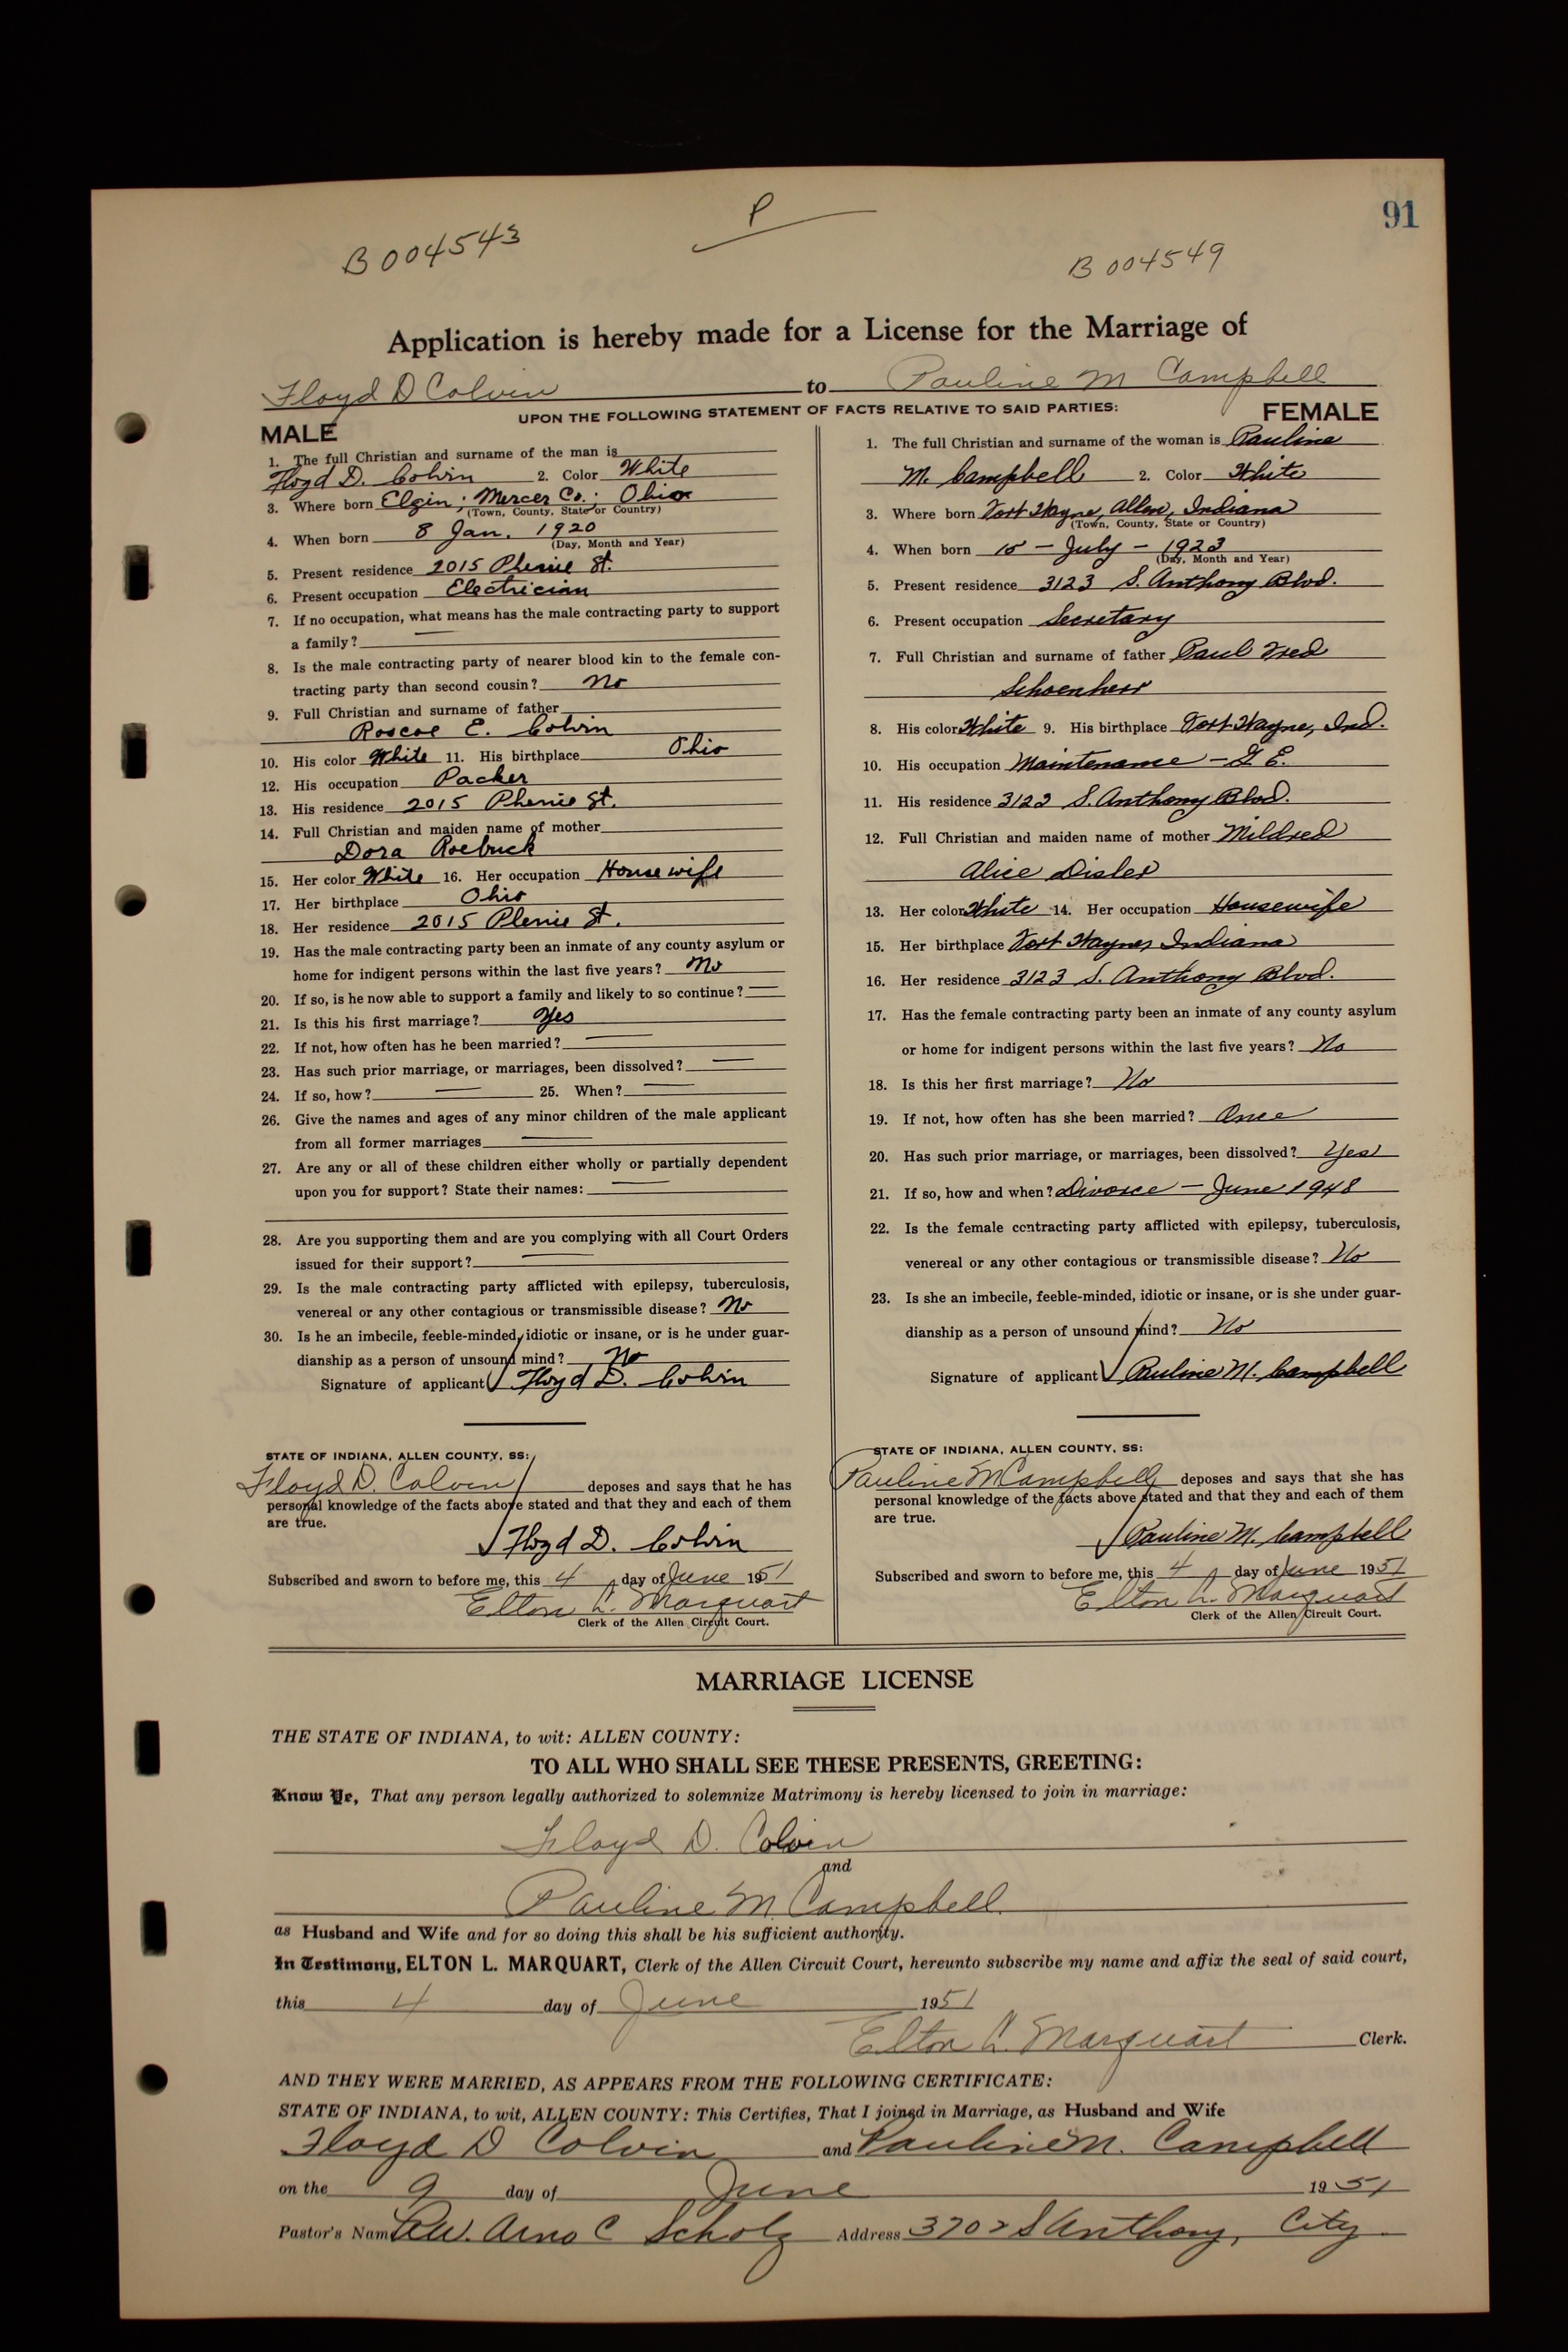 91
P
B 004543
B 004549
Application is hereby made for a License for the Marriage of
Floyd D Colvin to Pauline M Campbell
UPON THE FOLLOWING STATEMENT OF FACTS RELATIVE TO SAID PARTIES:
MALE
1. The full Christian and surname of the man is
Floyd D. Colvin 2. Color White
3. Where born Elgin; Mercer Co.; Ohio
(Town, County, State or Country)
4. When born 8 Jan. 1920
(Day, Month and Year)
5. Present residence 2015 St.
6. Present occupation Electrician
7. If no occupation, what means has the male contracting party to support
a family? —
8. Is the male contracting party of nearer blood kin to the female con-
tracting party than second cousin? No
9. Full Christian and surname of father
Roscoe E. Colvin
10. His color White 11. His birthplace Ohio
12. His occupation Packer
13. His residence 2015 St.
14. Full Christian and maiden name of mother
Dora Roebuck
15. Her color White 16. Her occupation Housewife
17. Her birthplace Ohio
18. Her residence 2015 St.
19. Has the male contracting party been an inmate of any county asylum or
home for indigent persons within the last five years? No
20. If so, is he now able to support a family and likely to so continue? —
21. Is this his first marriage? Yes
22. If not, how often has he been married? —
23. Has such prior marriage, or marriages, been dissolved? —
24. If so, how? — 25. When? —
26. Give the names and ages of any minor children of the male applicant
from all former marriages —
27. Are any or all of these children either wholly or partially dependent
upon you for support? State their names: —
28. Are you supporting them and are you complying with all Court Orders
issued for their support? —
29. Is the male contracting party afflicted with epilepsy, tuberculosis,
venereal or any other contagious or transmissible disease? No
30. Is he an imbecile, feeble-minded, idiotic or insane, or is he under guar-
dianship as a person of unsound mind? No
Signature of applicant Floyd D. Colvin
STATE OF INDIANA, ALLEN COUNTY, SS:
Floyd D. Colvin deposes and says that he has
personal knowledge of the facts above stated and that they and each of them
are true.
Floyd D. Colvin
Subscribed and sworn to before me, this 4 day of June 1951
Elton L. Marquart
Clerk of the Allen Circuit Court.
FEMALE
1. The full Christian and surname of the woman is Pauline
M. Campbell 2. Color White
3. Where born Fort Wayne, Allen, Indiana
(Town, County, State or Country)
4. When born 15 — July — 1923
(Day, Month and Year)
5. Present residence 3123 S. Anthony Blvd.
6. Present occupation Secretary
7. Full Christian and surname of father Paul Fred
Schoenherr
8. His color White 9. His birthplace Fort Wayne, Ind.
10. His occupation Maintenance — G. E.
11. His residence 3123 S. Anthony Blvd.
12. Full Christian and maiden name of mother Mildred
Alice Disler
13. Her color White 14. Her occupation Housewife
15. Her birthplace Fort Wayne, Indiana
16. Her residence 3123 S. Anthony Blvd.
17. Has the female contracting party been an inmate of any county asylum
or home for indigent persons within the last five years? No
18. Is this her first marriage? No
19. If not, how often has she been married? Once
20. Has such prior marriage, or marriages, been dissolved? Yes
21. If so, how and when? Divorce — June 1948
22. Is the female contracting party afflicted with epilepsy, tuberculosis,
venereal or any other contagious or transmissible disease? No
23. Is she an imbecile, feeble-minded, idiotic or insane, or is she under guar-
dianship as a person of unsound mind? No
Signature of applicant Pauline M. Campbell
STATE OF INDIANA, ALLEN COUNTY, SS:
Pauline M Campbell deposes and says that she has
personal knowledge of the facts above stated and that they and each of them
are true.
Pauline M. Campbell
Subscribed and sworn to before me, this 4 day of June 1951
Elton L. Marquart
Clerk of the Allen Circuit Court.
MARRIAGE LICENSE
THE STATE OF INDIANA, to wit: ALLEN COUNTY:
TO ALL WHO SHALL SEE THESE PRESENTS, GREETING:
Know Ye, That any person legally authorized to solemnize Matrimony is hereby licensed to join in marriage:
Floyd D. Colvin
and
Pauline M. Campbell
as Husband and Wife and for so doing this shall be his sufficient authority.
In Testimony, ELTON L. MARQUART, Clerk of the Allen Circuit Court, hereunto subscribe my name and affix the seal of said court,
this 4 day of June 1951
Elton L. Marquart Clerk.
AND THEY WERE MARRIED, AS APPEARS FROM THE FOLLOWING CERTIFICATE:
STATE OF INDIANA, to wit, ALLEN COUNTY: This Certifies, That I joined in Marriage, as Husband and Wife
Floyd D Colvin and Pauline M. Campbell
on the 9 day of June 1951
Pastor's Name Rev. Arno C Scholz Address 3702 S Anthony, City